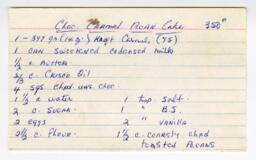 Choc. Caramel Pecan Cake 350°
1 - 397 gr. (14 oz.) Kraft Caramels (75)
1 can sweetened condensed milk
1/2 c Butter
2/3 c. Crisco Oil
4 sqs chd uns. choc.
1 1/2 c water 1 tsp salt.
2 c. sugar 1 " B.S.
2 eggs 2 " vanilla
2 1/2 c. flour 1 1/2 c. coarsely chpd
toasted Pecans